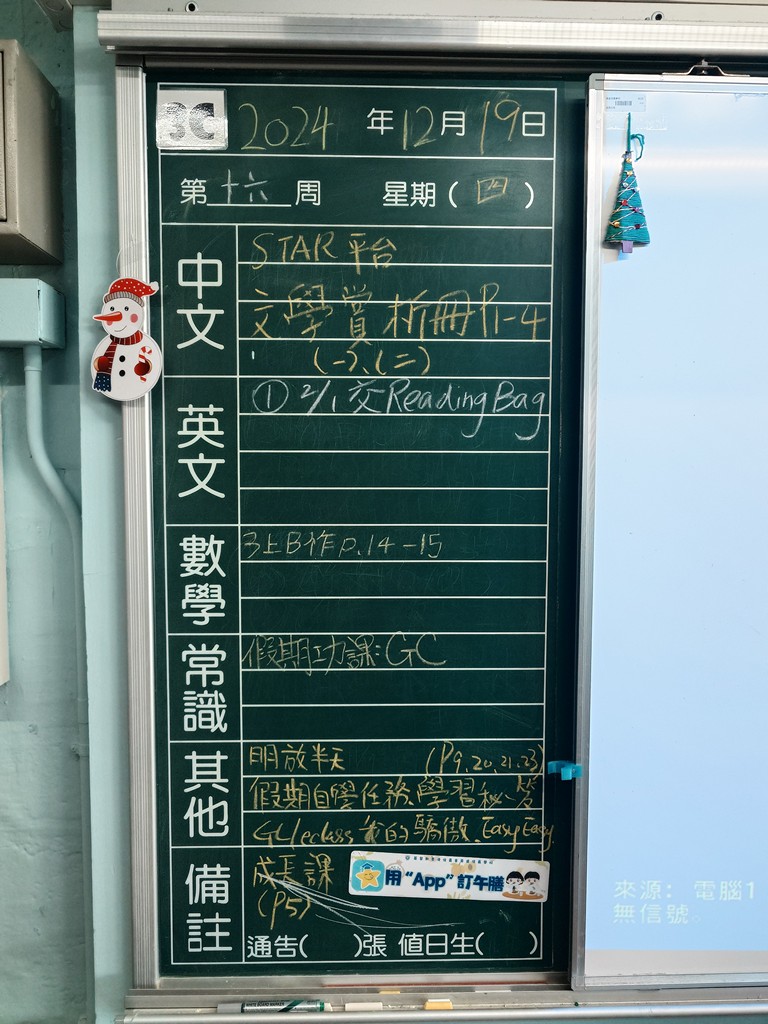 3C 2024 年 12 月 19 日
第 十六 周 星期 ( 四 )
中文
STAR 平台
文學賞析冊 P1-4
(一)、(二)
英文
① 2/1 交 Reading Bag
數學
3上B作 p.14-15
常識
假期功課: GC
其他
明放半天 (P9, 20, 21, 23)
假期自學任務 學習秘笈
GC/eclass 我的驕傲 Easy Easy
備註
成長課
(P5)
用 “App” 訂午膳
通告( )張 值日生( )
來源: 電腦1
無信號。